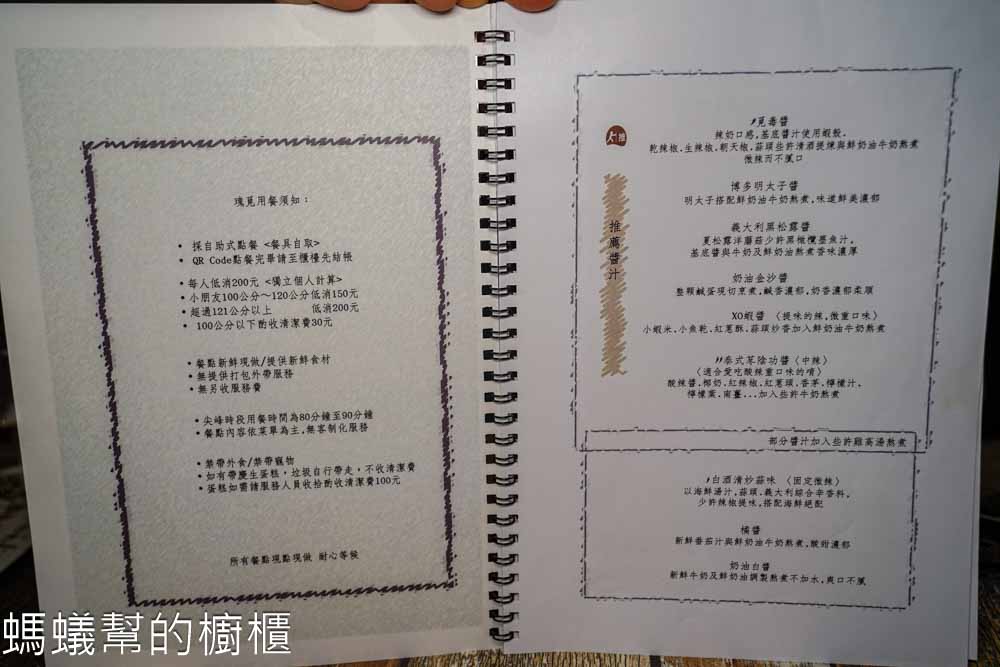 瑰覓用餐須知：
• 採自助式點餐 <餐具自取>
• QR Code點餐完畢請至櫃檯先結帳
• 每人低消200元 <獨立個人計算>
• 小朋友100公分～120公分低消150元
• 超過121公分以上 低消200元
• 100公分以下酌收清潔費30元
• 餐點新鮮現做/提供新鮮食材
• 無提供打包外帶服務
• 無另收服務費
• 尖峰時段用餐時間為80分鐘至90分鐘
• 餐點內容依菜單為主,無客制化服務
• 禁帶外食/禁帶寵物
• 如有帶慶生蛋糕，垃圾自行帶走，不收清潔費
• 蛋糕如需請服務人員收拾酌收清潔費100元
所有餐點現點現做 耐心等候
推
推薦醬汁
覓毒醬
辣奶口感,基底醬汁使用蝦殼.
乾辣椒.生辣椒.朝天椒.蒜頭些許清酒提煉與鮮奶油牛奶熬煮
微辣而不膩口
博多明太子醬
明太子搭配鮮奶油牛奶熬煮,味道鮮美濃郁
義大利黑松露醬
夏松露洋蘑菇少許黑橄欖墨魚汁,
基底醬與牛奶及鮮奶油熬煮香味濃厚
奶油金沙醬
整顆鹹蛋現切烹煮,鹹香濃郁,奶香濃郁柔順
XO蝦醬 〈提味的辣,微重口味〉
小蝦米.小魚乾.紅蔥酥.蒜頭炒香加入鮮奶油牛奶熬煮
泰式冬陰功醬〈中辣〉
〈適合愛吃酸辣重口味的唷〉
酸辣醬.椰奶.紅辣椒.紅蔥頭.香茅.檸檬汁.
檸檬葉.南薑...加入些許牛奶熬煮
部分醬汁加入些許雞高湯熬煮
白酒清炒蒜味 〈固定微辣〉
以海鮮湯汁,蒜頭.義大利綜合辛香料,
少許辣椒提味,搭配海鮮絕配
橘醬
新鮮番茄汁與鮮奶油牛奶熬煮,酸甜濃郁
奶油白醬
新鮮牛奶及鮮奶油調製熬煮不加水,爽口不膩
螞蟻幫的櫥櫃